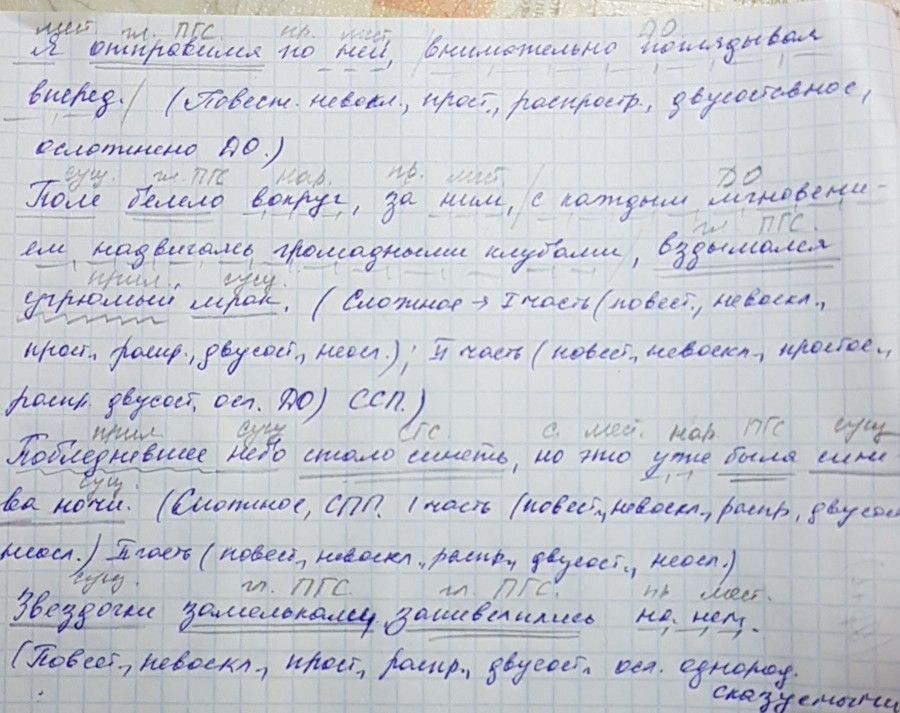 мест. гл. ПГС. пр. мест. ДО
Я отправился по ней, внимательно поглядывая
вперёд. (Повест. невоскл., прост., распростр., двусоставное,
осложнено ДО.)
сущ. гл. ПГС нар. пр. мест ДО
Поле белело вокруг, за ним, с каждым мгновени-
гл ПГС.
ем надвигаясь громадными клубами, вздымался
прил. сущ.
угрюмый мрак. (Сложное → I часть (повест., невоскл.,
прост., распр., двусост., неосл.); II часть (повест., невоскл., простое.,
распр. двусост, осл. ДО) ССП.)
прил сущ СГС. с. мест. нар. ПГС сущ
Побледневшее небо стало синеть, но это уже была сине-
сущ.
ва ночи. (Сложное, СПП. I часть (повест., невоскл., распр., двусост
неосл.) II часть (повест., невоскл., распр., двусост., неосл.)
сущ. гл. ПГС. гл. ПГС. пр мест.
Звёздочки замелькали, зашевелились на нём.
(Повест., невоскл., прост., распр., двусост., осл. однород.
сказуемыми